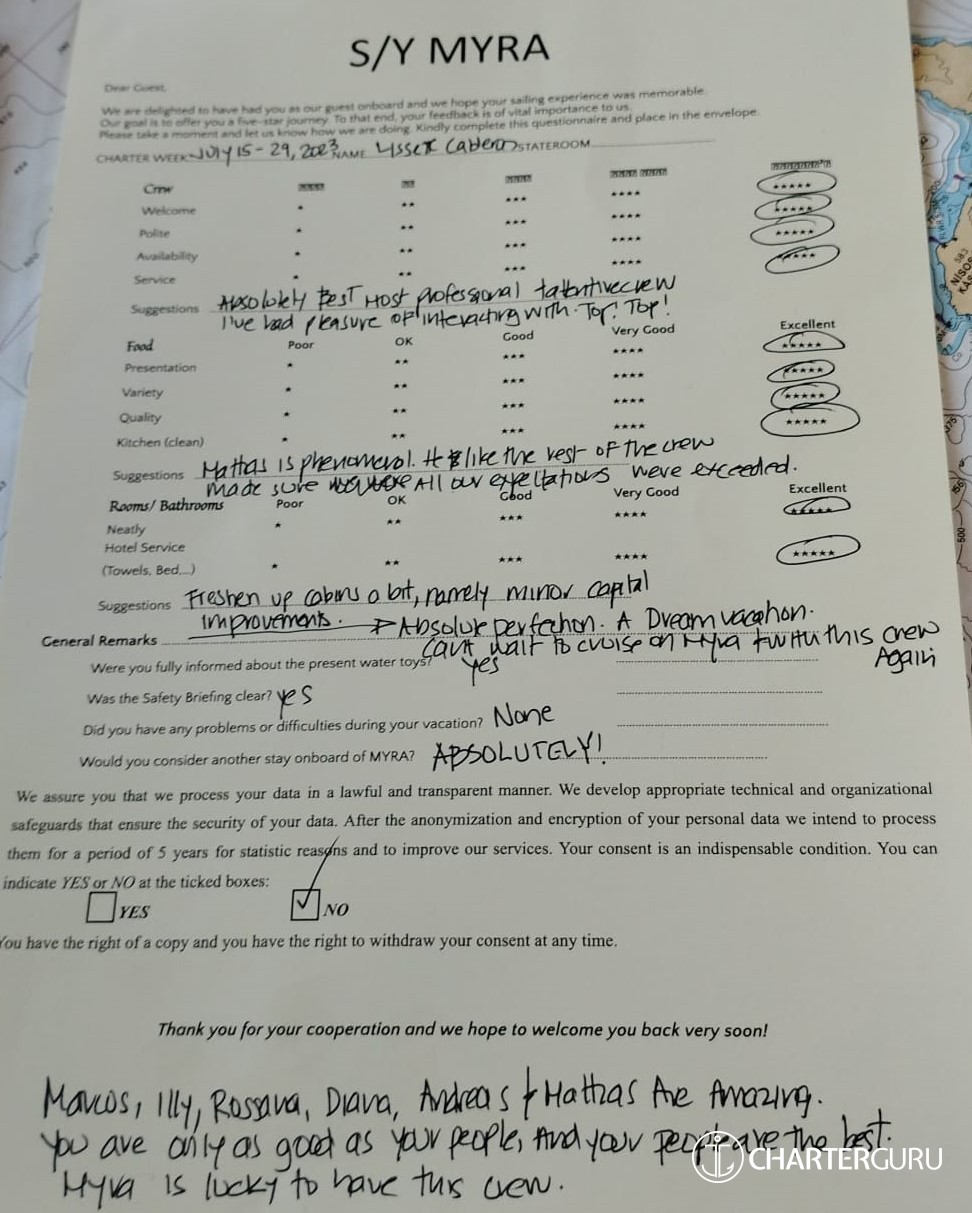 S/Y MYRA
Dear Guest,
We are delighted to have had you as our guest onboard and we hope your sailing experience was memorable.
Our goal is to offer you a five-star journey. To that end, your feedback is of vital importance to us.
Please take a moment and let us know how we are doing. Kindly complete this questionnaire and place in the envelope.
CHARTER WEEK JULY 15-29, 2023 NAME STATEROOM
Crew
Welcome * ** *** **** *****
Polite * ** *** **** *****
Availability * ** *** **** *****
Service * ** *** **** *****
Suggestions Absolutely Best Most professional + attentive crew
I've had pleasure of interacting with. Top! Top!
Food Poor OK Good Very Good Excellent
Presentation * ** *** **** *****
Variety * ** *** **** *****
Quality * ** *** **** *****
Kitchen (clean) * ** *** **** *****
Suggestions Mathas is phenomenol. like the rest of the crew
made sure All our expectations were exceeded.
Rooms/ Bathrooms Poor OK Good Very Good Excellent
Neatly * ** *** **** *****
Hotel Service
(Towels, Bed,...) * ** *** **** *****
Suggestions Freshen up cabins a bit, namely minor capital
improvements.
General Remarks Absolute perfection. A Dream vacation.
Can't wait to cruise on Myra + with this crew
Again
Were you fully informed about the present water toys? Yes
Was the Safety Briefing clear? yes
Did you have any problems or difficulties during your vacation? None
Would you consider another stay onboard of MYRA? ABSOLUTELY!
We assure you that we process your data in a lawful and transparent manner. We develop appropriate technical and organizational
safeguards that ensure the security of your data. After the anonymization and encryption of your personal data we intend to process
them for a period of 5 years for statistic reasons and to improve our services. Your consent is an indispensable condition. You can
indicate YES or NO at the ticked boxes:
YES NO
You have the right of a copy and you have the right to withdraw your consent at any time.
Thank you for your cooperation and we hope to welcome you back very soon!
Marcos, Illy, Rossana, Diana, Andreas + Mathas Are Amazing.
You are only as good as your people, And your people are the best.
Myra is lucky to have this crew.
CHARTERGURU
583
NISOS
500